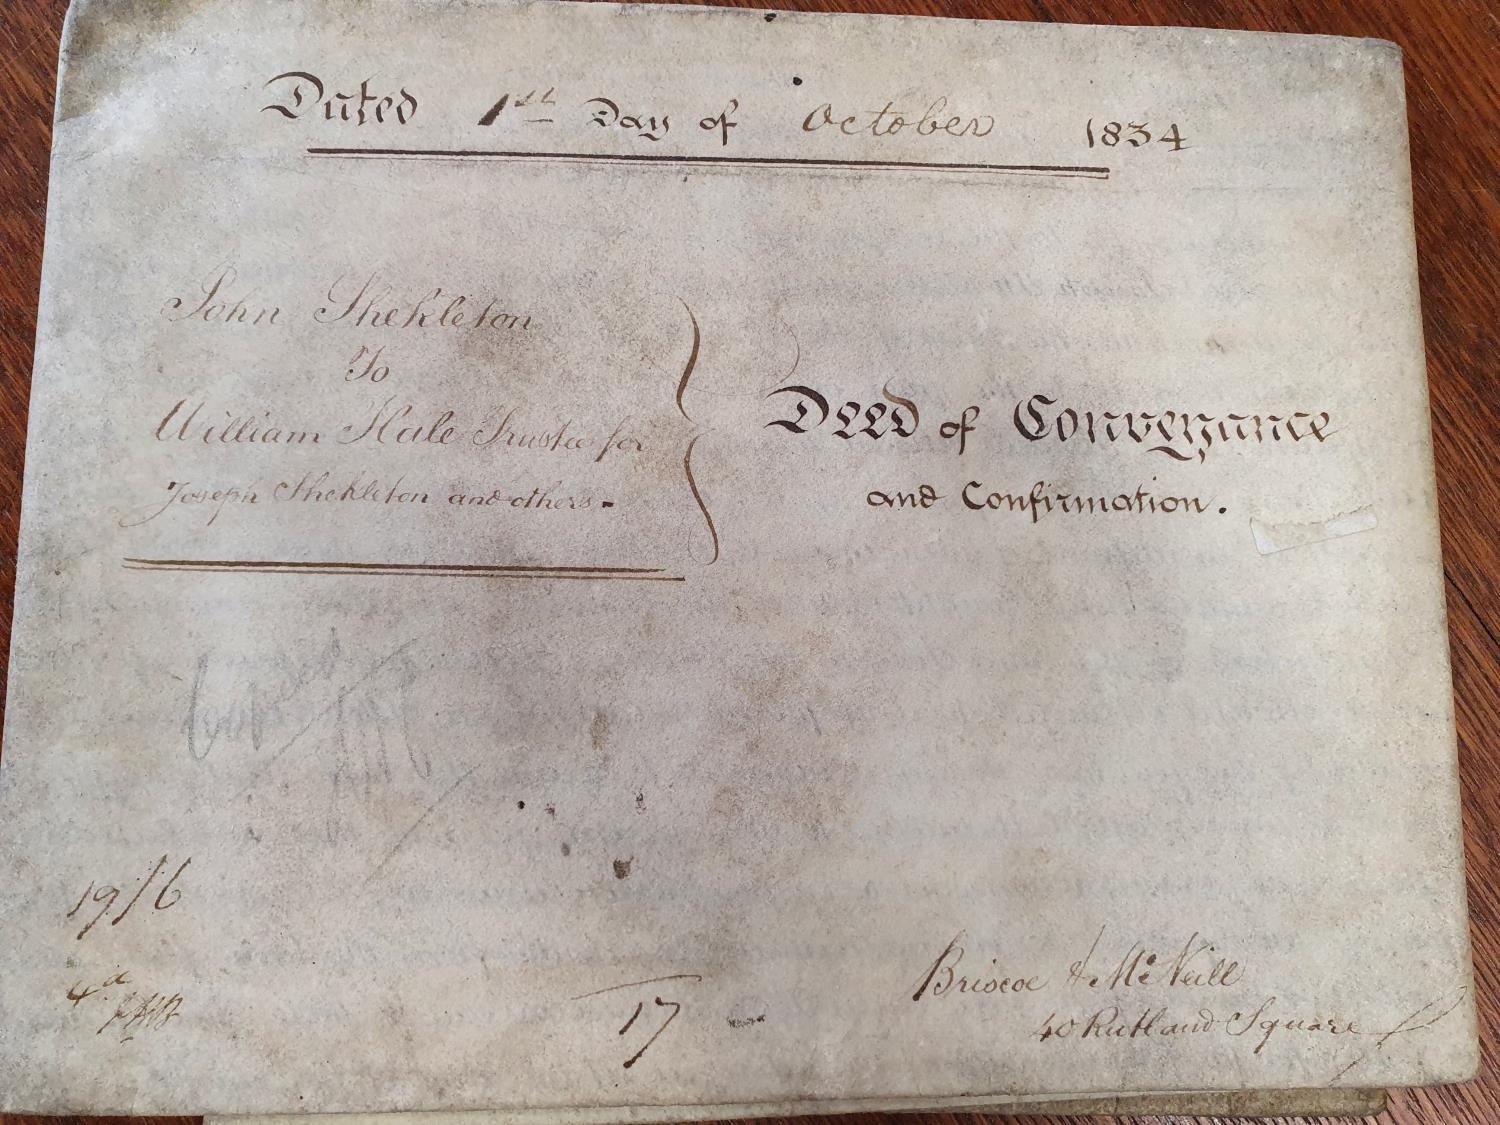 Dated 1st Day of October 1834
John Shekleton
To
William Hale Trustee for
Joseph Shekleton and others.
Deed of Conveyance
and Confirmation.
19/6
4d
17
Briscoe & McNeill
40 Rutland Square